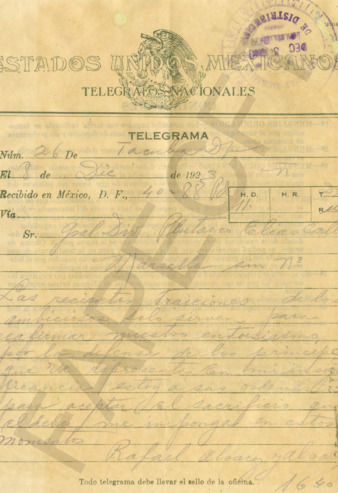 ESTADOS UNIDOS MEXICANOS
TELEGRAFOS NACIONALES
DE DISTRIBUCION
DEC
TELEGRAMA
Núm. 26 De Tacuba D.F.
El 8 de Dic de 1923.
Recibido en México, D. F., 40-
H.D. H.R. T.
11- R.
Vía
Sr. Gral Don Plutarco Elias Calles
Marsella sin No
Las recientes traiciones de los
ambiciosos solo sirven para
reafirmar nuestro entusiasmo
por la defensa de los principios
que Ud representa
estoy a sus ordenes
para aceptar el sacrificio que
el deber me imponga en estos
momentos
Rafael Alvarez y Alvarez
16.40
Todo telegrama debe llevar el sello de la oficina.
FAPECFT